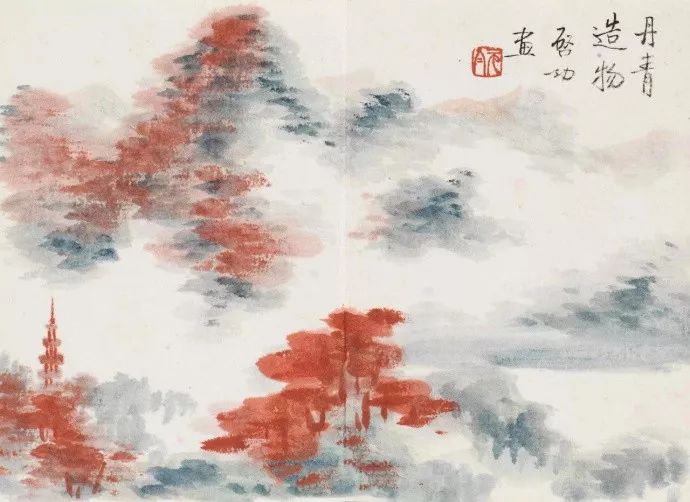 丹青
造物
啓功
畫